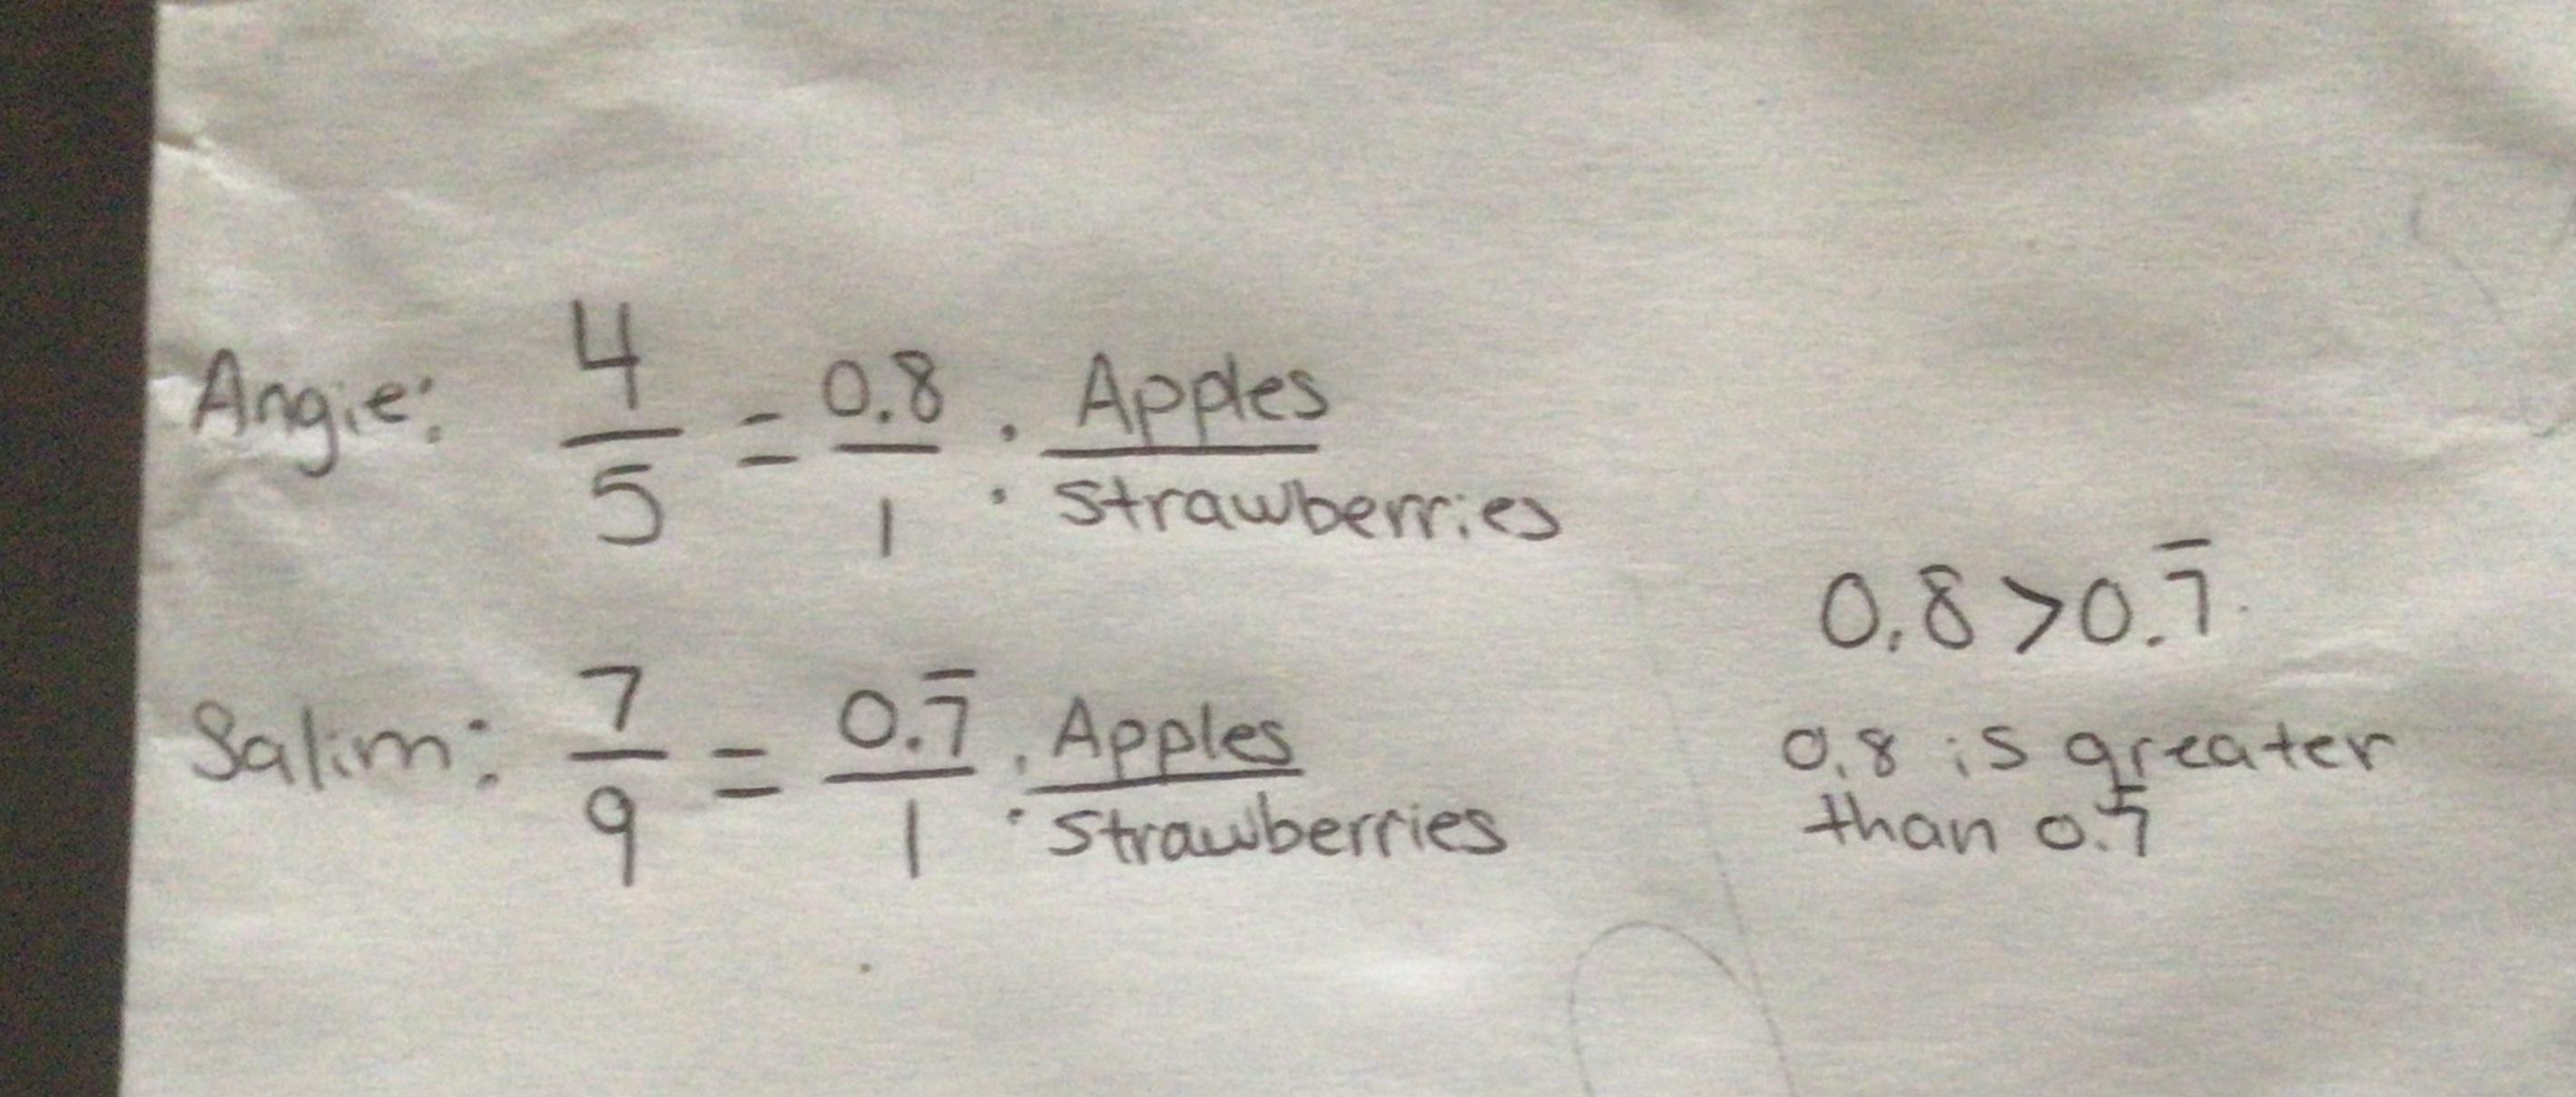 Angie: 4/5 = 0.8/1 : Apples/Strawberries
Salim: 7/9 = 0.7̅/1 : Apples/Strawberries
0.8 > 0.7̅
0.8 is greater
than 0.7̅